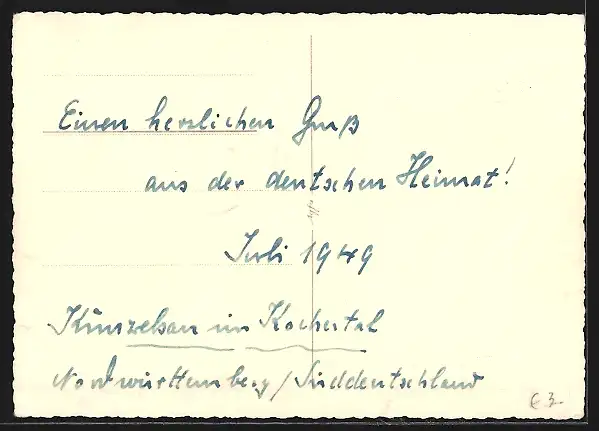 Einen herzlichen Gruß
aus der deutschen Heimat!
Juli 1949
Künzelsau im Kochertal
Nordwürttemberg / Süddeutschland
€ 3.-